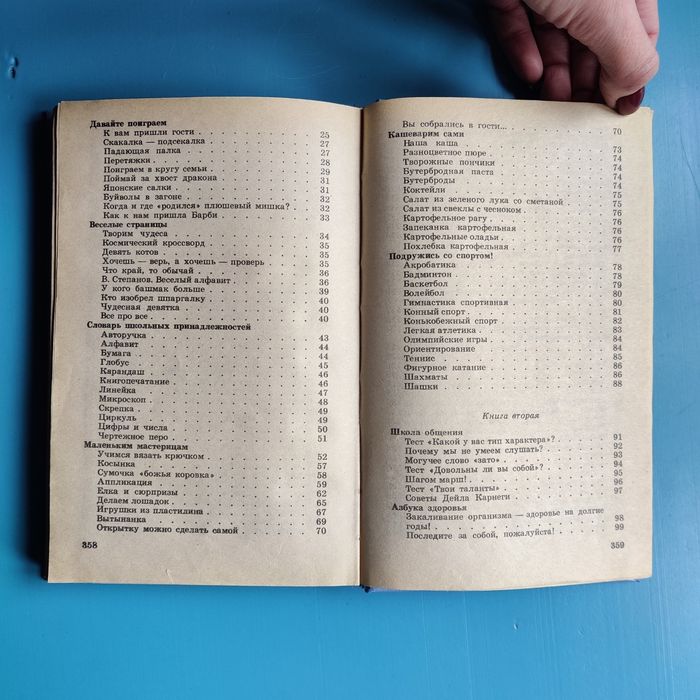 Давайте поиграем
К вам пришли гости . . . . . . . . . . 25
Скакалка — подсекалка . . . . . . . . . . 27
Падающая палка . . . . . . . . . . 27
Перетяжки . . . . . . . . . . 28
Поиграем в кругу семьи . . . . . . . . . . 29
Поймай за хвост дракона . . . . . . . . . . 31
Японские салки . . . . . . . . . . 31
Буйволы в загоне . . . . . . . . . . 32
Когда и где «родился» плюшевый мишка? . . . . 32
Как к нам пришла Барби . . . . . . . . . . 33
Веселые страницы
Творим чудеса . . . . . . . . . . 34
Космический кроссворд . . . . . . . . . . 35
Девять котов . . . . . . . . . . 35
Хочешь — верь, а хочешь — проверь . . . . . 35
Что край, то обычай . . . . . . . . . . 36
В. Степанов. Веселый алфавит . . . . . . . 36
У кого башмак больше . . . . . . . . . . 39
Кто изобрел шпаргалку . . . . . . . . . . 40
Чудесная девятка . . . . . . . . . . 40
Все про все . . . . . . . . . . 40
Словарь школьных принадлежностей
Авторучка . . . . . . . . . . 43
Алфавит . . . . . . . . . . 44
Бумага . . . . . . . . . . 44
Глобус . . . . . . . . . . 45
Карандаш . . . . . . . . . . 46
Книгопечатание . . . . . . . . . . 46
Линейка . . . . . . . . . . 47
Микроскоп . . . . . . . . . . 48
Скрепка . . . . . . . . . . 49
Циркуль . . . . . . . . . . 49
Цифры и числа . . . . . . . . . . 50
Чертежное перо . . . . . . . . . . 51
Маленьким мастерицам
Учимся вязать крючком . . . . . . . . . . 52
Косынка . . . . . . . . . . 57
Сумочка «божья коровка» . . . . . . . . . . 58
Аппликация . . . . . . . . . . 59
Елка и сюрпризы . . . . . . . . . . 62
Делаем лошадок . . . . . . . . . . 65
Игрушки из пластилина . . . . . . . . . . 67
Вытынанка . . . . . . . . . . 69
Открытку можно сделать самой . . . . . . . 70
358
Вы собрались в гости... . . . . . . . . . . 70
Кашеварим сами
Наша каша . . . . . . . . . . 73
Разноцветное пюре . . . . . . . . . . 74
Творожные пончики . . . . . . . . . . 74
Бутербродная паста . . . . . . . . . . 74
Бутерброды . . . . . . . . . . 74
Коктейли . . . . . . . . . . 75
Салат из зеленого лука со сметаной . . . . . 75
Салат из свеклы с чесноком . . . . . . . . 76
Картофельное рагу . . . . . . . . . . 76
Запеканка картофельная . . . . . . . . . . 76
Картофельные оладьи . . . . . . . . . . 76
Похлебка картофельная . . . . . . . . . . 77
Подружись со спортом!
Акробатика . . . . . . . . . . 78
Бадминтон . . . . . . . . . . 78
Баскетбол . . . . . . . . . . 79
Волейбол . . . . . . . . . . 80
Гимнастика спортивная . . . . . . . . . . 80
Конный спорт . . . . . . . . . . 81
Конькобежный спорт . . . . . . . . . . 82
Легкая атлетика . . . . . . . . . . 83
Олимпийские игры . . . . . . . . . . 84
Ориентирование . . . . . . . . . . 84
Теннис . . . . . . . . . . 85
Фигурное катание . . . . . . . . . . 86
Шахматы . . . . . . . . . . 86
Шашки . . . . . . . . . . 88
Книга вторая
Школа общения
Тест «Какой у вас тип характера»? . . . . . 91
Почему мы не умеем слушать? . . . . . . . 92
Могучее слово «зато» . . . . . . . . . . 93
Тест «Довольны ли вы собой»? . . . . . . . 94
Шагом марш! . . . . . . . . . . 95
Тест «Твои таланты» . . . . . . . . . . 96
Советы Дейла Карнеги . . . . . . . . . . 97
Азбука здоровья
Закаливание организма — здоровье на долгие
годы! . . . . . . . . . . 98
Последите за собой, пожалуйста! . . . . . . 99
359